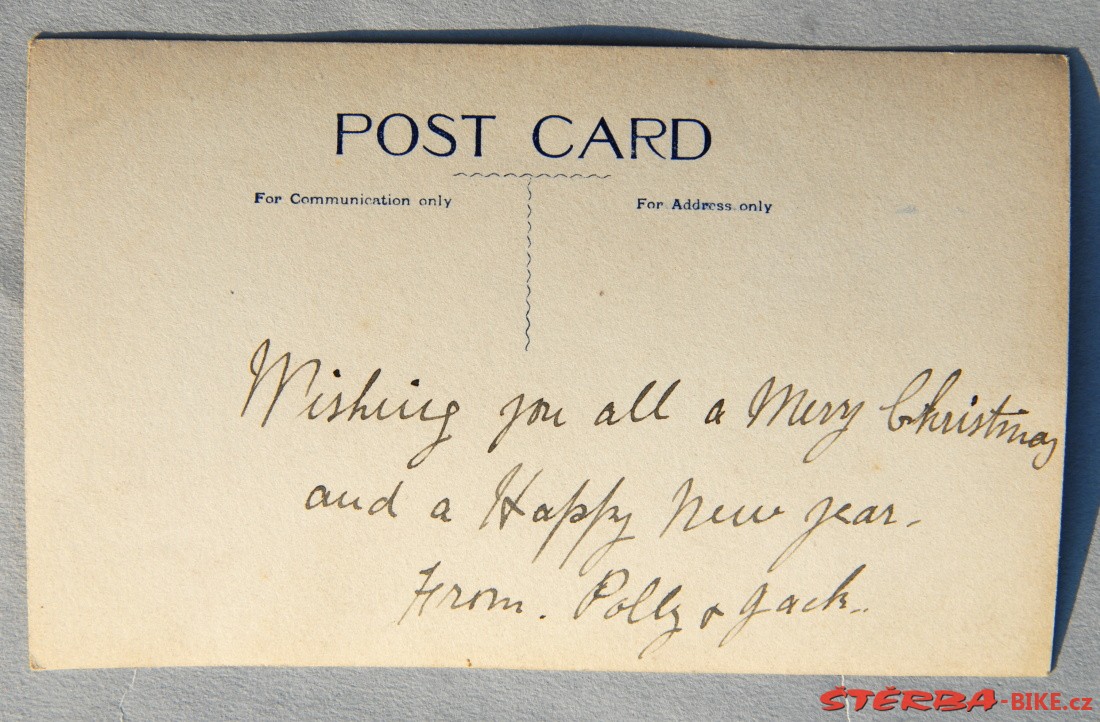 POST CARD
For Communication only
For Address only
Wishing you all a Merry Christmas
and a Happy New year.
From. Polly & Jack..
ŠTĚRBA-BIKE.cz